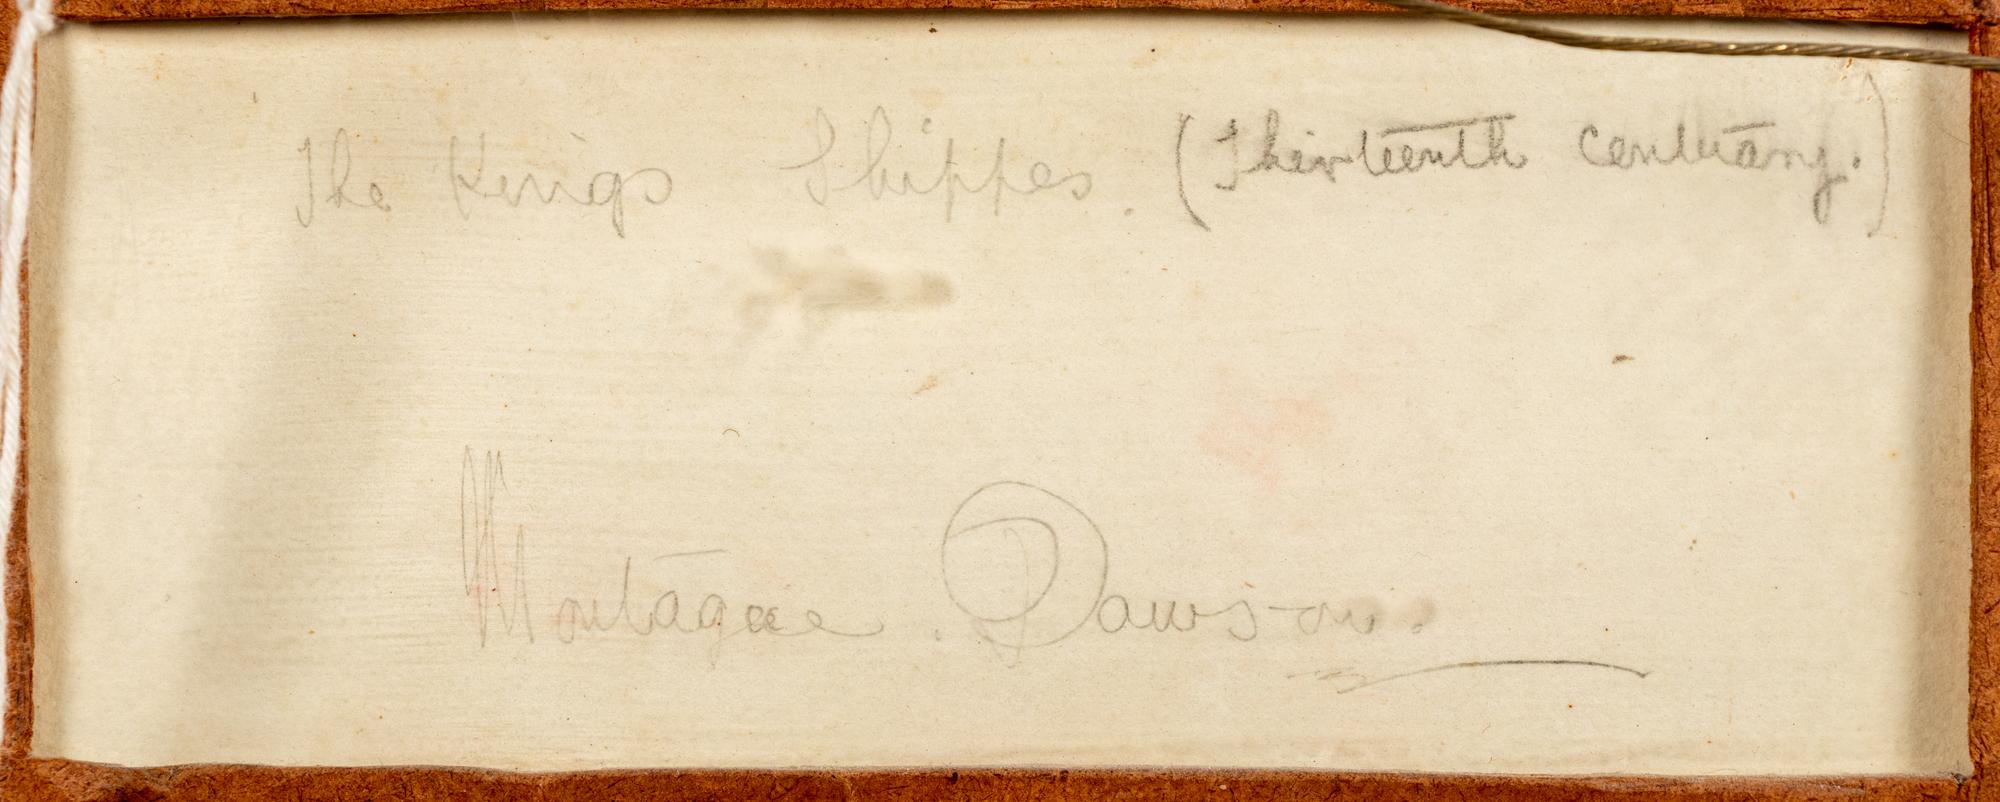 The Kings Shippes. (Thirteenth century.)
Montague. Dawson.